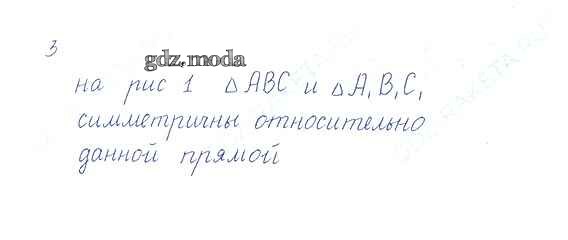 3
gdz.moda
на рис 1 △ABC и △A₁B₁C₁
симметричны относительно
данной прямой